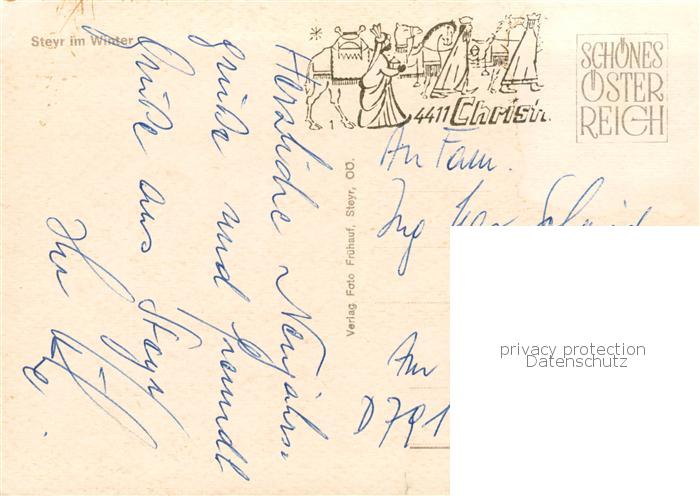 Steyr im Winter
4411 Christk
SCHÖNES
ÖSTER
REICH
Verlag Foto Frühauf, Steyr, OÖ.
Herzliche Neujahrs-
grüße und freundl
Grüße aus Steyr
Ihr
An Fam.
Ing
An
D 791
privacy protection
Datenschutz